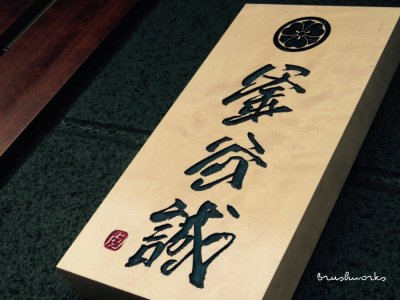 釜谷誠
brushworks